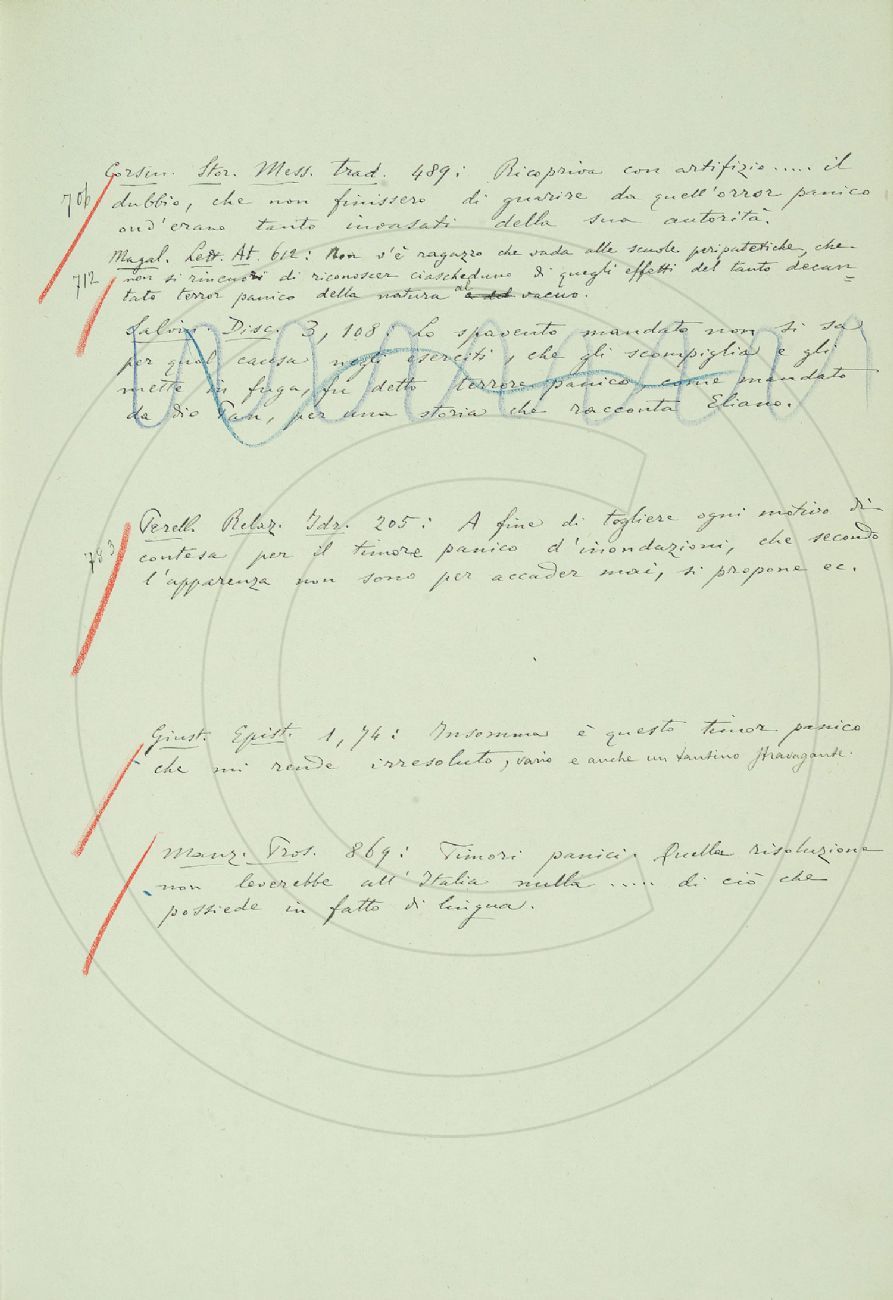 Corsin. Stor. Mess. trad. 489: Ricopriva con artifizio..... il
706 dubbio, che non finissero di guarire da quell'orror panico
ond'erano tanto invasati della sua autorità.
Magal. Lett. At. 612: Non v'è ragazzo che vada alle scuole peripatetiche, che
712 non si rincuori di riconoscer ciascheduno di quegli effetti del tanto decan=
tato terror panico della natura al vacuo.
Salvin. Disc. 3, 108: Lo spavento mandato non si sa
per qual causa negli eserciti, che gli scompiglia e gli
mette in fuga, fu detto terrore panico, come mandato
da dio Pan, per una storia che racconta Eliano.
Perell. Relaz. Idr. 205: A fine di togliere ogni motivo di
783 contesa per il timore panico d'inondazioni, che secondo
l'apparenza non sono per accader mai, si propone ec.
Giust. Epist. 1, 74: Insomma è questo timor panico
che mi rende irresoluto, vario e anche un tantino stravagante.
Manz. Pros. 869: Timori panici. Quella risoluzione
non leverebbe all'Italia nulla ..... di ciò che
possiede in fatto di lingua.